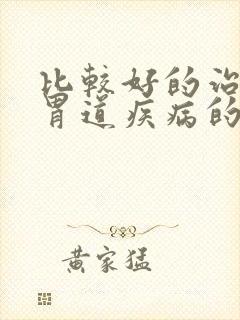 比较好的治
胃道疾病的
黄家猛